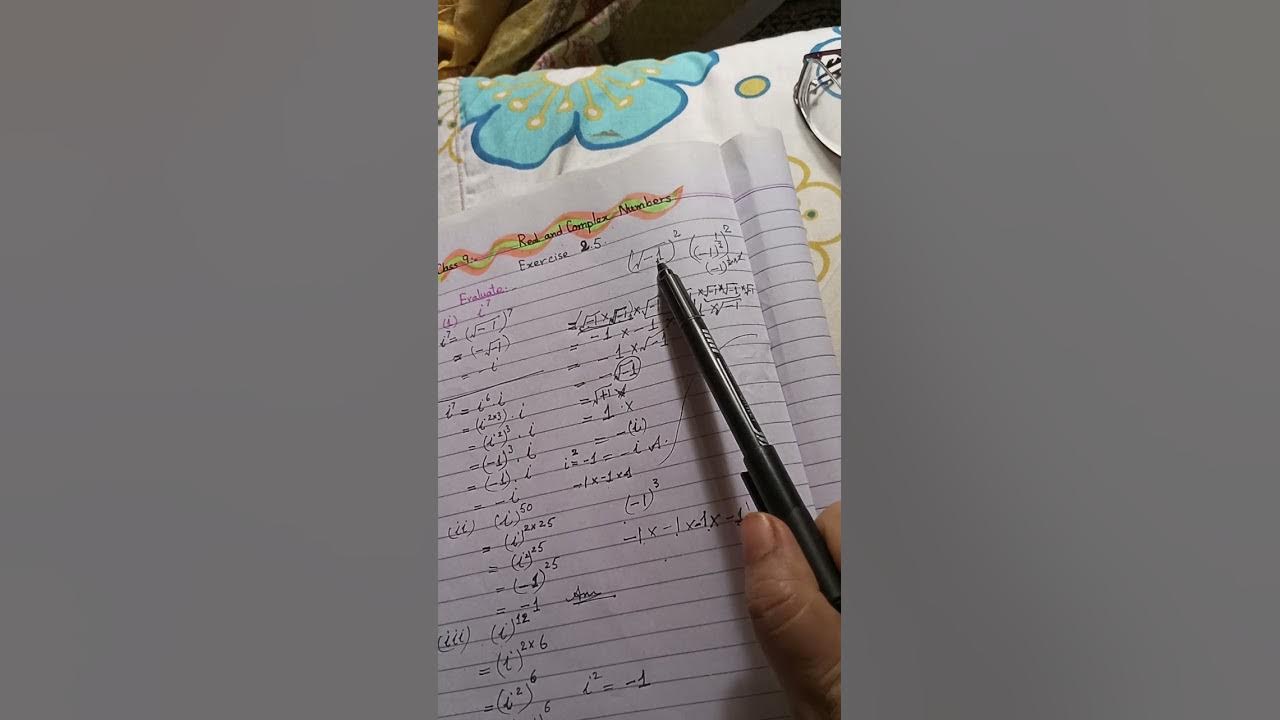 Class 9:- Real and Complex Numbers
Exercise 2.5.
Evaluate:-
(i) i⁷
i⁷ = (√-1)⁷
= (-√-1)
= -i
i⁷ = i⁶.i
= (i²ˣ³).i
= (i²)³.i
= (-1)³.i
= (-1).i
= -i
(ii) (i)⁵⁰
= (i)²ˣ²⁵
= (i²)²⁵
= (-1)²⁵
= -1 Ans
(iii) (i)¹²
= (i)²ˣ⁶
= (i²)⁶
(√-1)² ((-1)^½)²
= -1 x -1
= -1x√-1
= -√-1
= 1 x
= -(i)
i² = -1 = -i
-1x-1x1
(-1)³
-1x-1x-1x-1
i² = -1